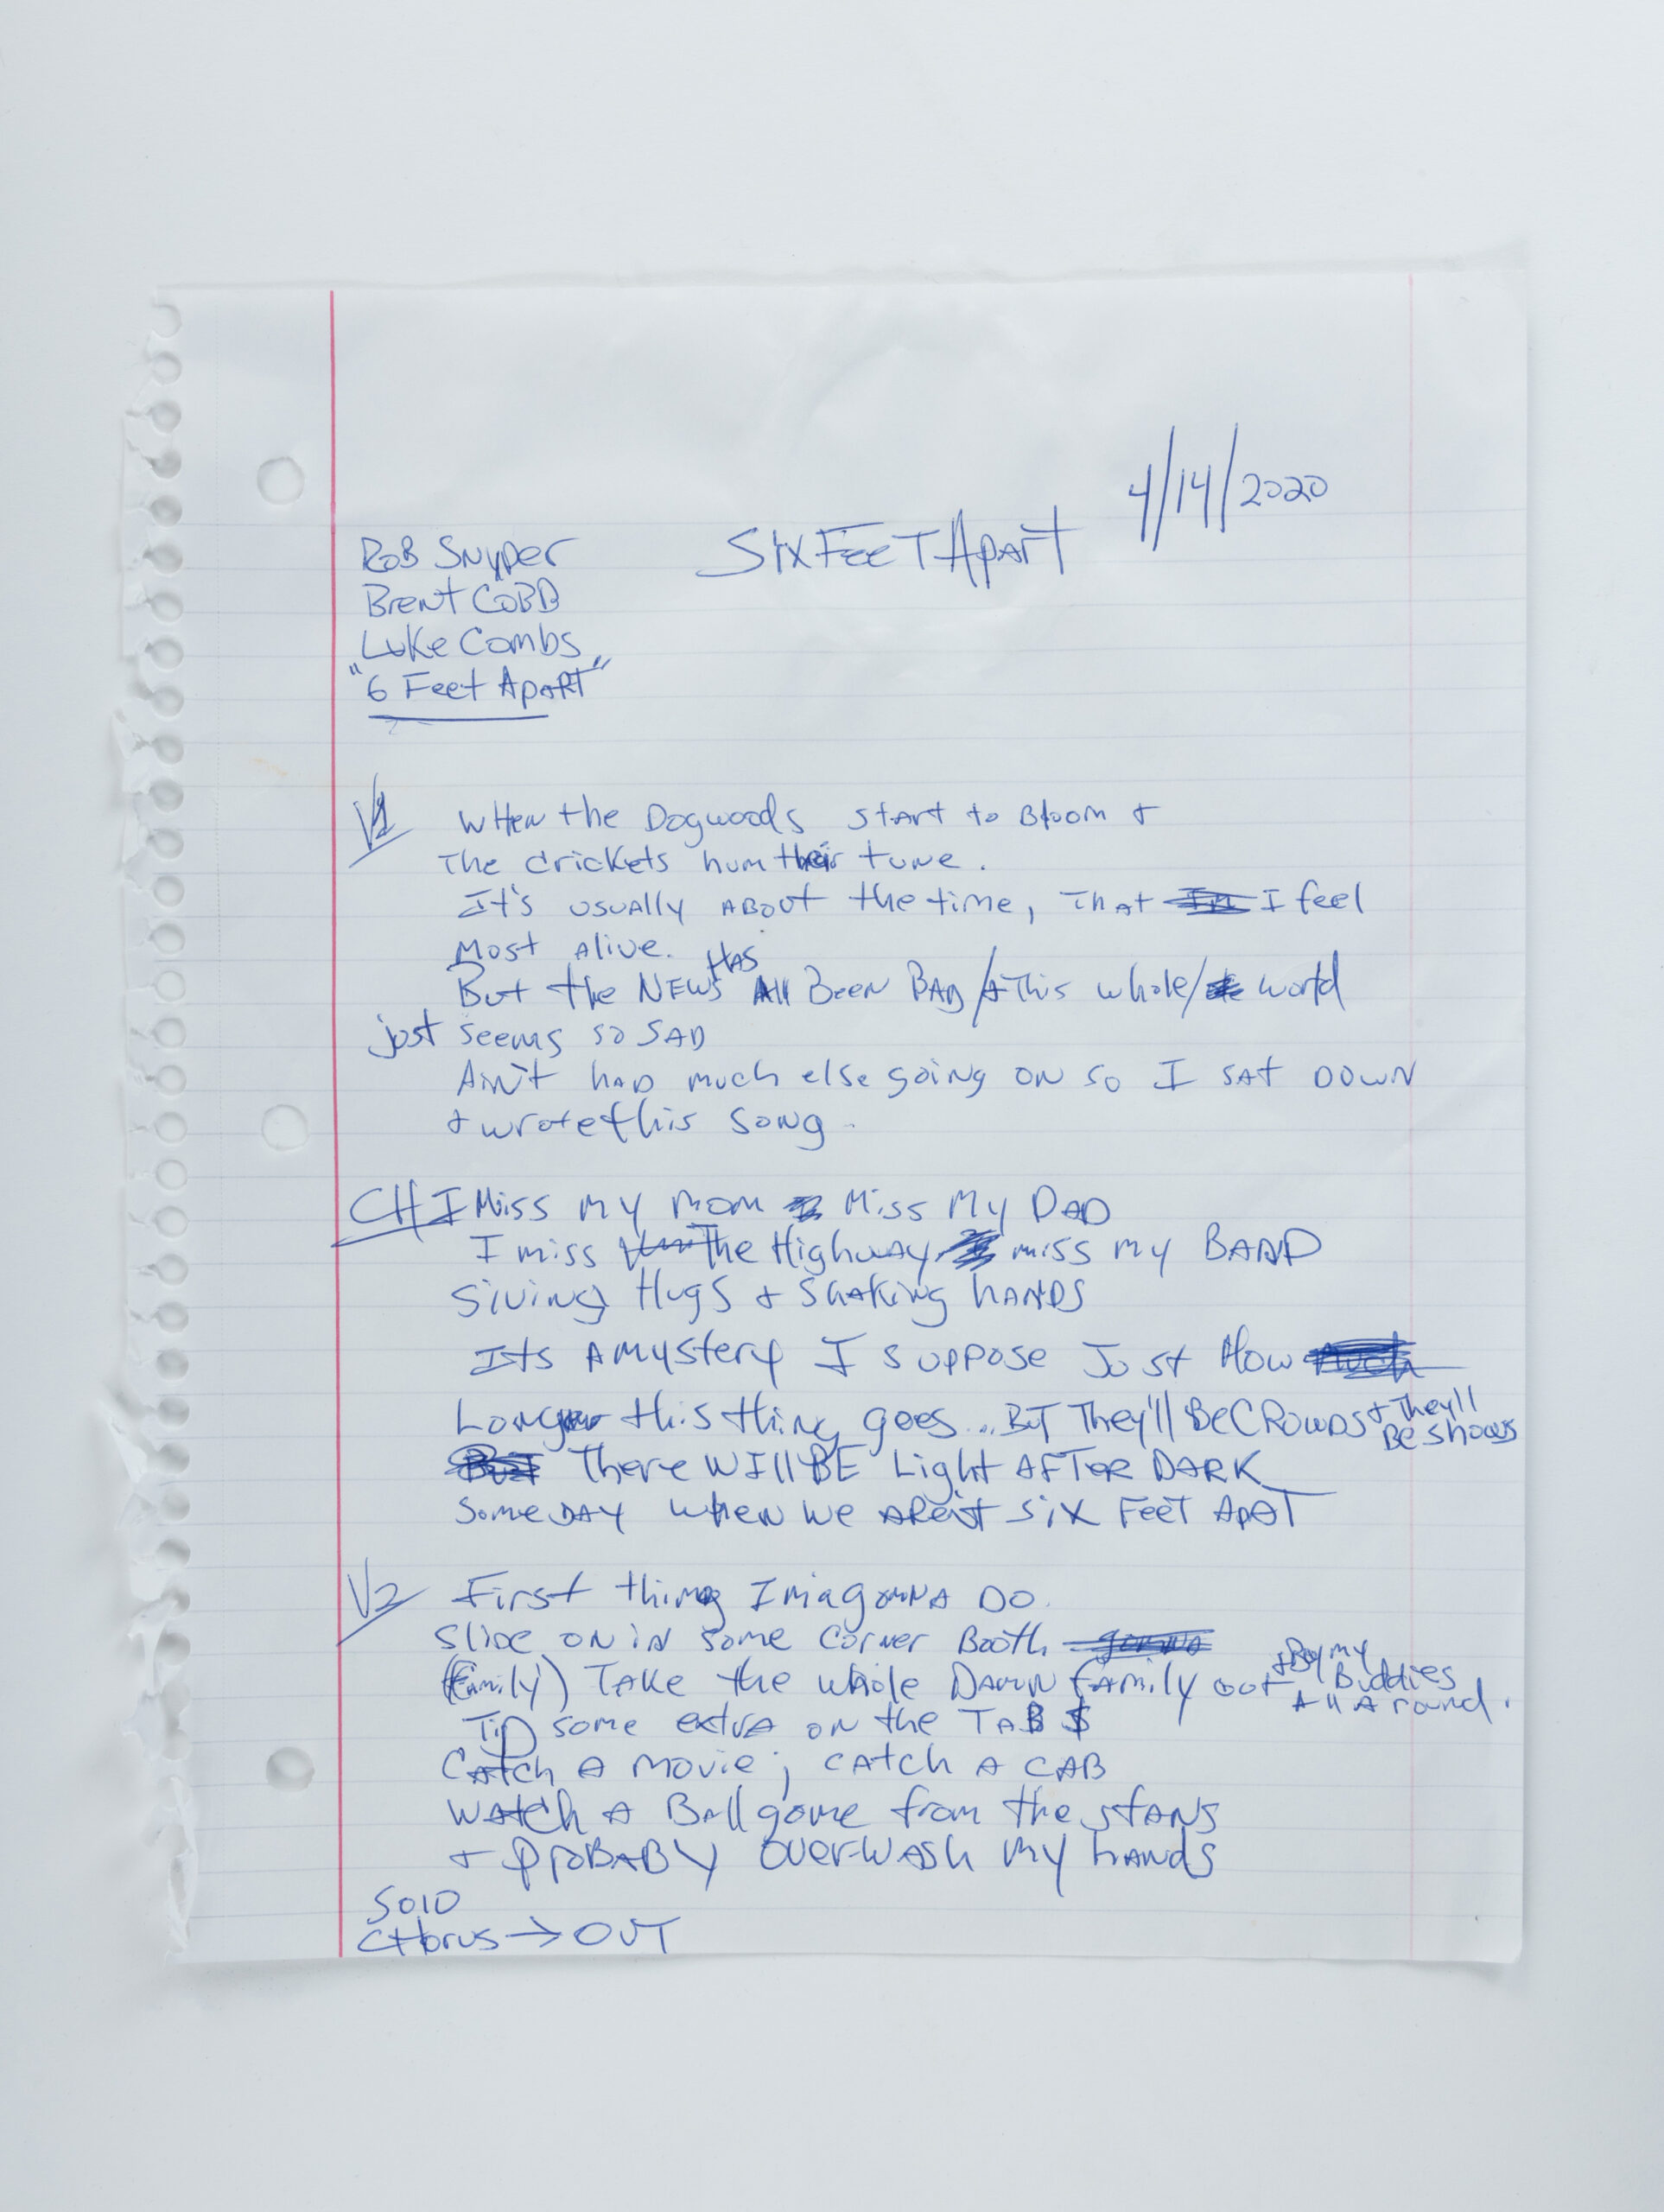 4/14/2020
SIX FEET APART
ROB SNYPER
Brent COBB
Luke Combs
"6 Feet Apart"
V1 WHEN the Dogwoods start to Bloom +
The crickets hum their tune.
It's usually ABOUT the time, THAT I feel
Most Alive.
HAS
But the NEWS All BEEN BAD / + This whole / world
just seems so SAD
Ain't had much else going on so I SAT DOWN
+ wrote this SONG.
CH I Miss MY MOM Miss MY DAD
I miss The Highway miss my BAND
Giving Hugs + Shaking HANDS
Its A Mystery I suppose Just How
Long this thing goes... BUT They'll BE CROWDS + They'll
BE shows
There WIll BE Light AFTER DARK
Some DAY WHEN we AREN'T SIX FEET APAT
V2 First thing Imagonna DO.
Slide on in some corner Booth
(family) TAKE the whole DAMN family out + Buy my
Buddies
All A round.
TIP some extra on the TAB $
CATCH A movie; CATCH A CAB
WATCH A Ballgame from the STANS
+ PROBABY OVER-WASH MY HANDS
Solo
CHorus → OUT